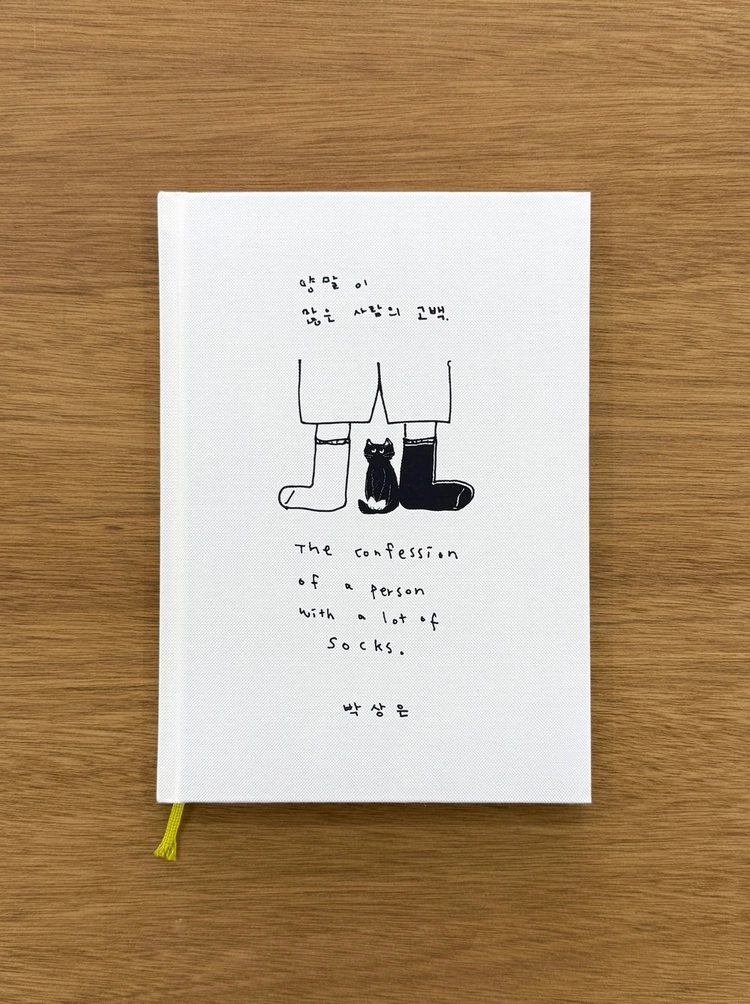 양말이
많은 사람의 고백.
The confession
of a person
with a lot of
socks.
박상은